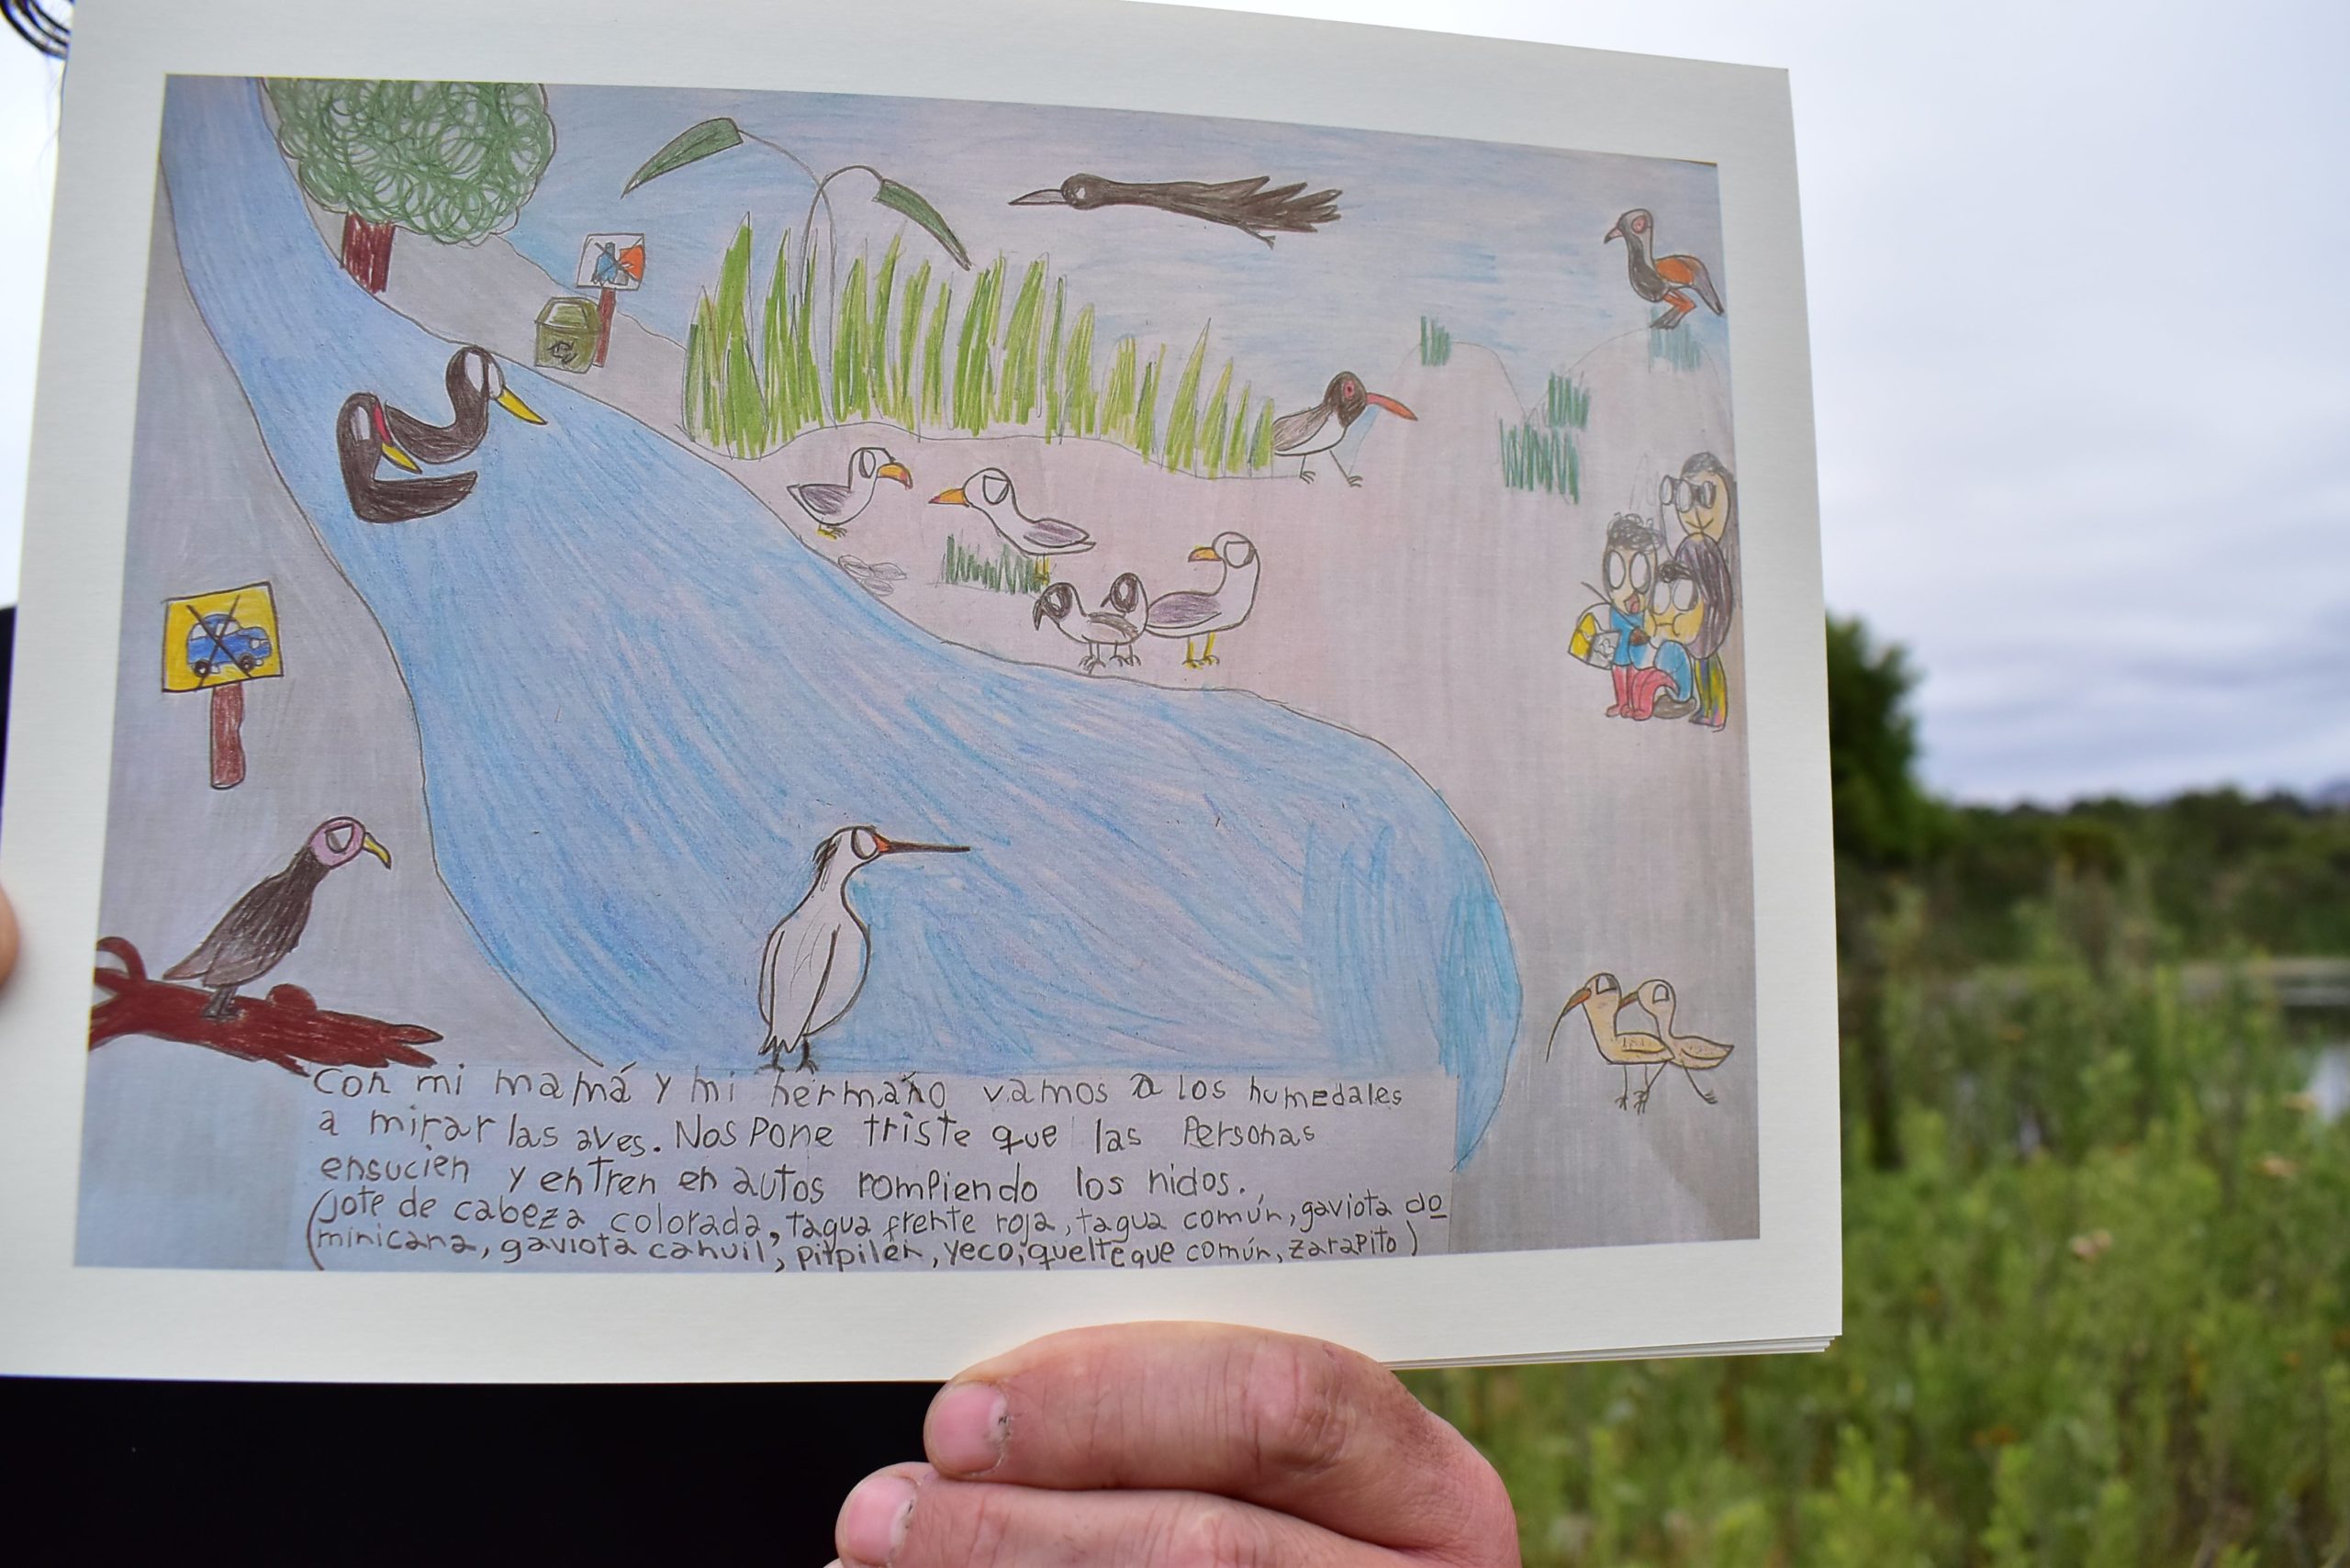 Con mi mamá y mi hermano vamos a los humedales
a mirar las aves. Nos pone triste que las personas
ensucien y entren en autos rompiendo los nidos.
(jote de cabeza colorada, tagua frente roja, tagua común, gaviota do
minicana, gaviota cahuil, pitpilen, yeco, quelteque común, zarapito)